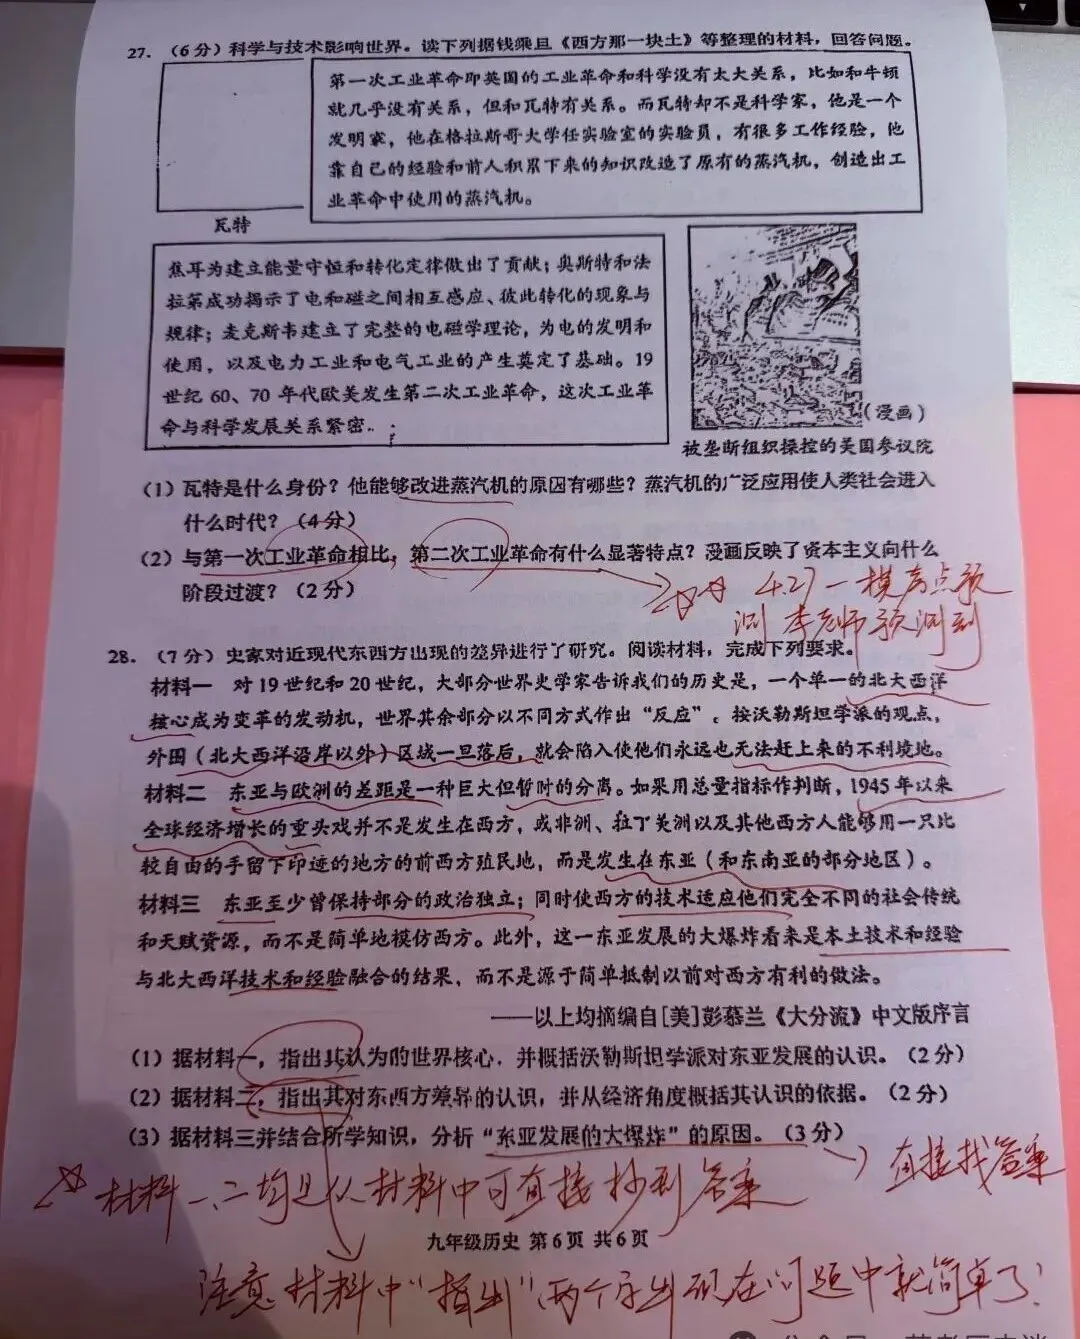 27. （6分）科学与技术影响世界。读下列据钱乘旦《西方那一块土》等整理的材料，回答问题。
第一次工业革命即英国的工业革命和科学没有太大关系，比如和牛顿
就几乎没有关系，但和瓦特有关系。而瓦特却不是科学家，他是一个
发明家，他在格拉斯哥大学任实验室的实验员，有很多工作经验，他
靠自己的经验和前人积累下来的知识改造了原有的蒸汽机，创造出工
业革命中使用的蒸汽机。
瓦特
焦耳为建立能量守恒和转化定律做出了贡献；奥斯特和法
拉第成功揭示了电和磁之间相互感应、彼此转化的现象与
规律；麦克斯韦建立了完整的电磁学理论，为电的发明和
使用，以及电力工业和电气工业的产生奠定了基础。19
世纪 60、70 年代欧美发生第二次工业革命，这次工业革
命与科学发展关系紧密..
（漫画）
被垄断组织操控的美国参议院
（1）瓦特是什么身份？他能够改进蒸汽机的原因有哪些？蒸汽机的广泛应用使人类社会进入
什么时代？（4分）
（2）与第一次工业革命相比，第二次工业革命有什么显著特点？漫画反映了资本主义向什么
阶段过渡？（2分）
4.27一模考点预
测 李老师预测到
28. （7分）史家对近现代东西方出现的差异进行了研究。阅读材料，完成下列要求。
材料一 对19世纪和20世纪，大部分世界史学家告诉我们的历史是，一个单一的北大西洋
核心成为变革的发动机，世界其余部分以不同方式作出“反应”。按沃勒斯坦学派的观点，
外围（北大西洋沿岸以外）区域一旦落后，就会陷入使他们永远也无法赶上来的不利境地。
材料二 东亚与欧洲的差距是一种巨大但暂时的分离。如果用总量指标作判断，1945年以来
全球经济增长的重头戏并不是发生在西方，或非洲、拉丁美洲以及其他西方人能够用一只比
较自由的手留下印迹的地方的前西方殖民地，而是发生在东亚（和东南亚的部分地区）。
材料三 东亚至少曾保持部分的政治独立；同时使西方的技术适应他们完全不同的社会传统
和天赋资源，而不是简单地模仿西方。此外，这一东亚发展的大爆炸看来是本土技术和经验
与北大西洋技术和经验融合的结果，而不是源于简单抵制以前对西方有利的做法。
——以上均摘编自[美]彭慕兰《大分流》中文版序言
（1）据材料一，指出其认为的世界核心，并概括沃勒斯坦学派对东亚发展的认识。（2分）
（2）据材料二，指出其对东西方差异的认识，并从经济角度概括其认识的依据。（2分）
（3）据材料三并结合所学知识，分析“东亚发展的大爆炸”的原因。（3分）
直接找答案
材料一、二均是从材料中可直接抄到答案
九年级历史 第6页 共6页
注意材料中“指出”两个字出现在问题中就简单了！